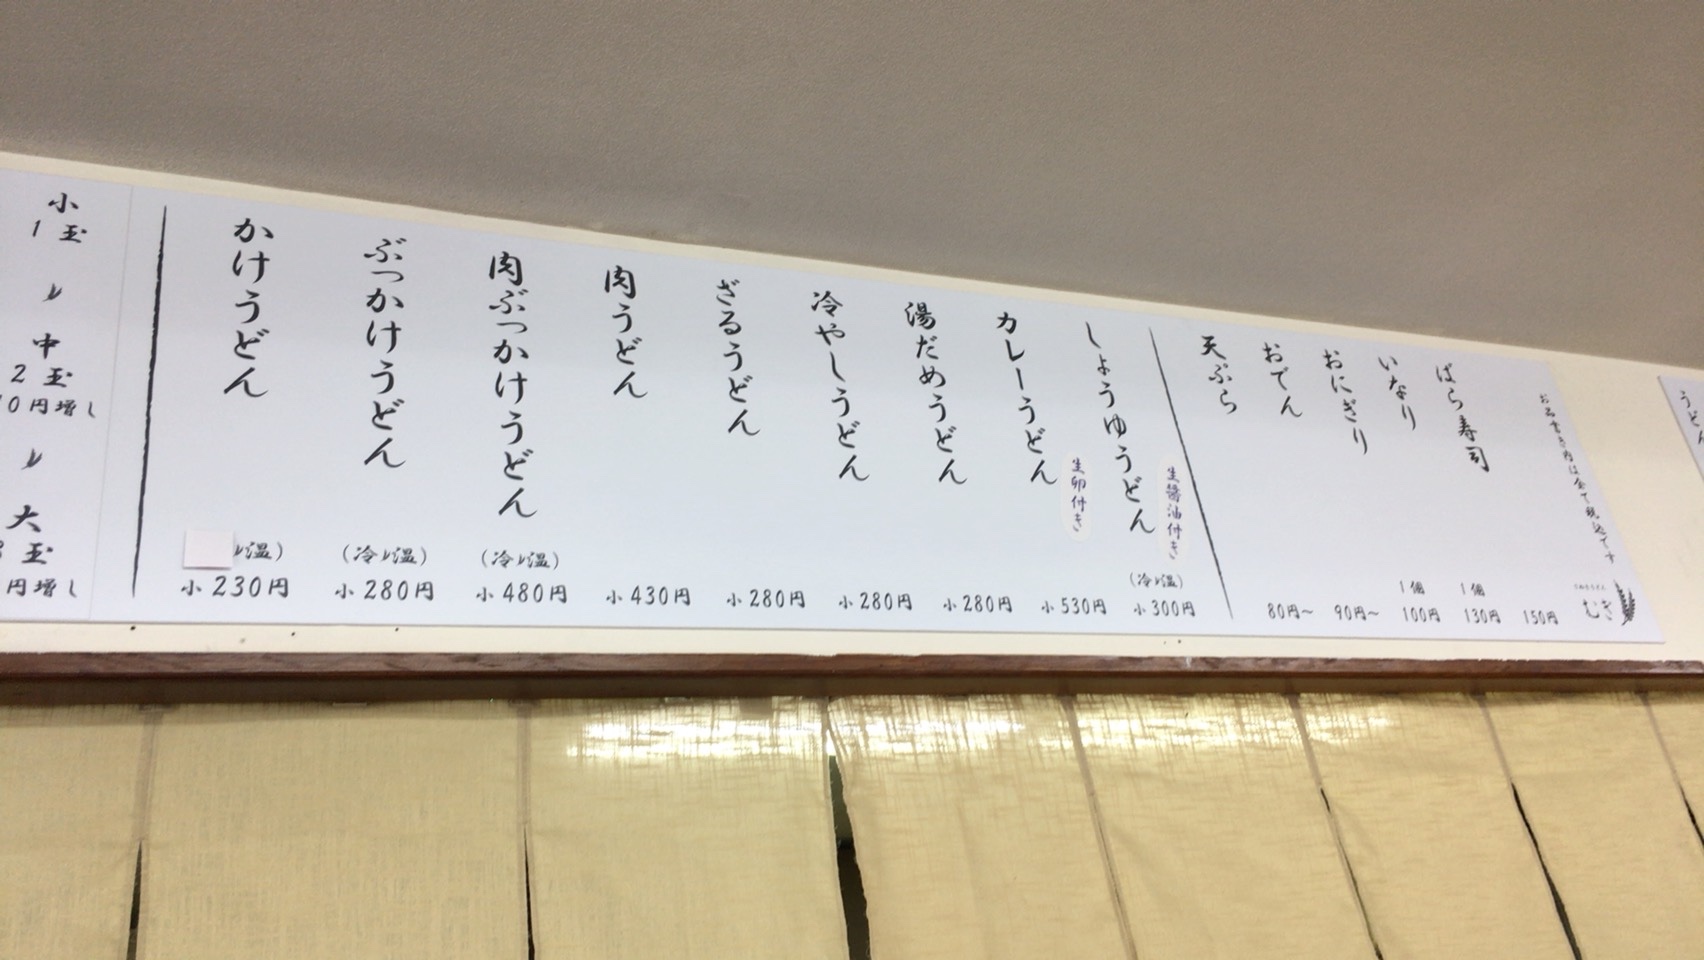 小
1玉
中
2玉
0円増し
大
玉
円増し
かけうどん
温)
小230円
ぶっかけうどん
(冷・温)
小280円
肉ぶっかけうどん
(冷・温)
小480円
肉うどん
小430円
ざるうどん
小280円
冷やしうどん
小280円
湯だめうどん
小280円
カレーうどん
生卵付き
小530円
しょうゆうどん
生醤油付き
(冷・温)
小300円
天ぷら
80円〜
おでん
90円〜
おにぎり
1個
100円
いなり
1個
130円
ばら寿司
150円
お品書き内は全て税込です
むぎ
うどん